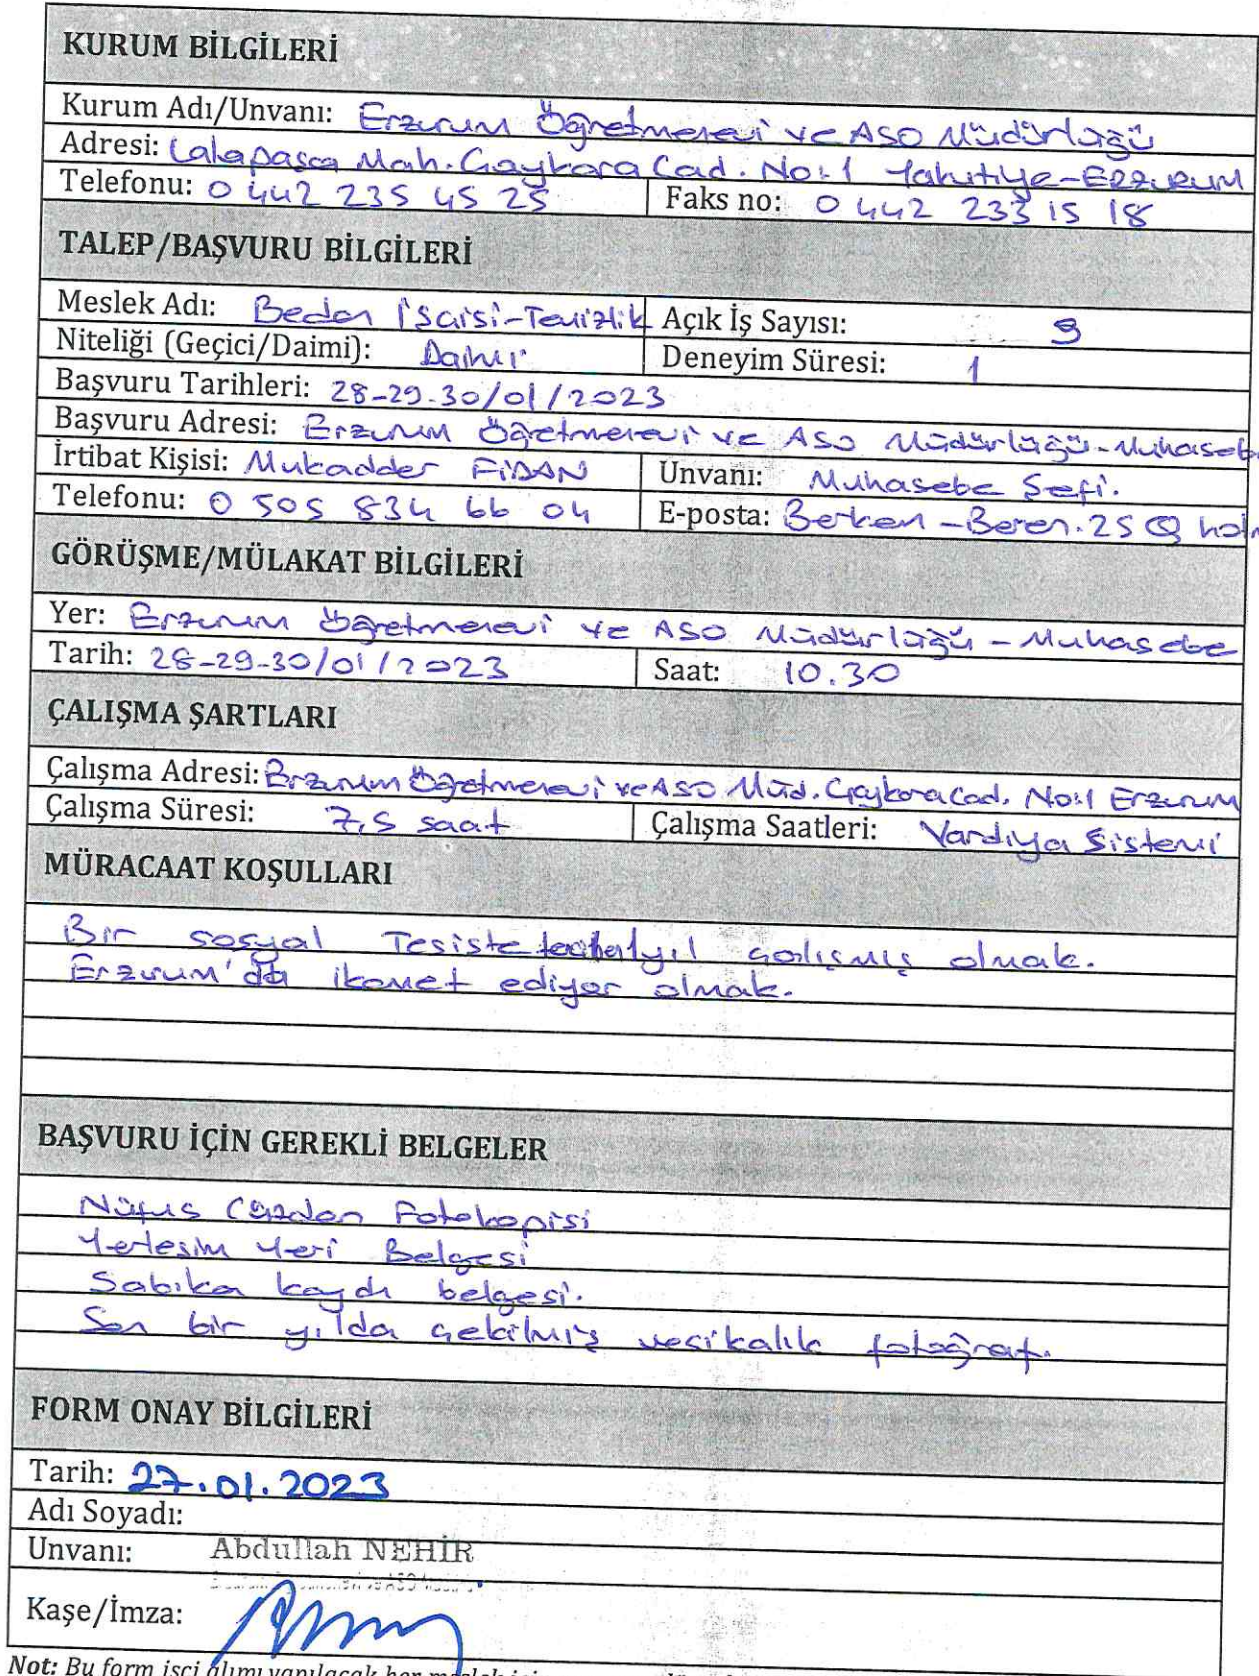 KURUM BİLGİLERİ
Kurum Adı/Unvanı: Erzurum Öğretmenevi ve ASO Müdürlüğü
Adresi: Lalapaşa Mah. Çaykara Cad. No:1 Yakutiye-Erzurum
Telefonu: 0 442 235 45 25 Faks no: 0 442 233 15 18
TALEP/BAŞVURU BİLGİLERİ
Meslek Adı: Beden İşçisi-Temizlik Açık İş Sayısı: 9
Niteliği (Geçici/Daimi): Daimi Deneyim Süresi: 1
Başvuru Tarihleri: 28-29-30/01/2023
Başvuru Adresi: Erzurum Öğretmenevi ve ASO Müdürlüğü-Muhaseb
İrtibat Kişisi: Mukadder FİDAN Unvanı: Muhasebe Şefi.
Telefonu: 0 505 834 66 04 E-posta: Berken-Beren.25@hotm
GÖRÜŞME/MÜLAKAT BİLGİLERİ
Yer: Erzurum Öğretmenevi ve ASO Müdürlüğü - Muhasebe
Tarih: 28-29-30/01/2023 Saat: 10.30
ÇALIŞMA ŞARTLARI
Çalışma Adresi: Erzurum Öğretmenevi ve ASO Müd. Çaykara Cad. No:1 Erzurum
Çalışma Süresi: 7,5 saat Çalışma Saatleri: Vardiya Sistemi
MÜRACAAT KOŞULLARI
Bir sosyal Tesiste yıl çalışmış olmak.
Erzurum'da ikamet ediyor olmak.
BAŞVURU İÇİN GEREKLİ BELGELER
Nüfus Cüzdan Fotokopisi
Yerleşim Yeri Belgesi
Sabıka kaydı belgesi.
Son bir yılda çekilmiş vesikalık fotoğraf.
FORM ONAY BİLGİLERİ
Tarih: 27.01.2023
Adı Soyadı:
Unvanı: Abdullah NEHİR
Kaşe/İmza:
Not: Bu form işçi alımı yapılacak her meslek